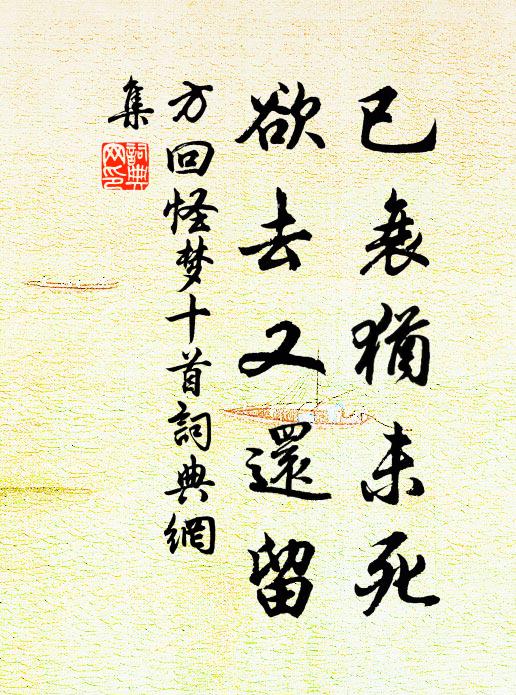 已衰猶未死
欲去又還留
方回怪梦十首詞典網
集
詞典
网印